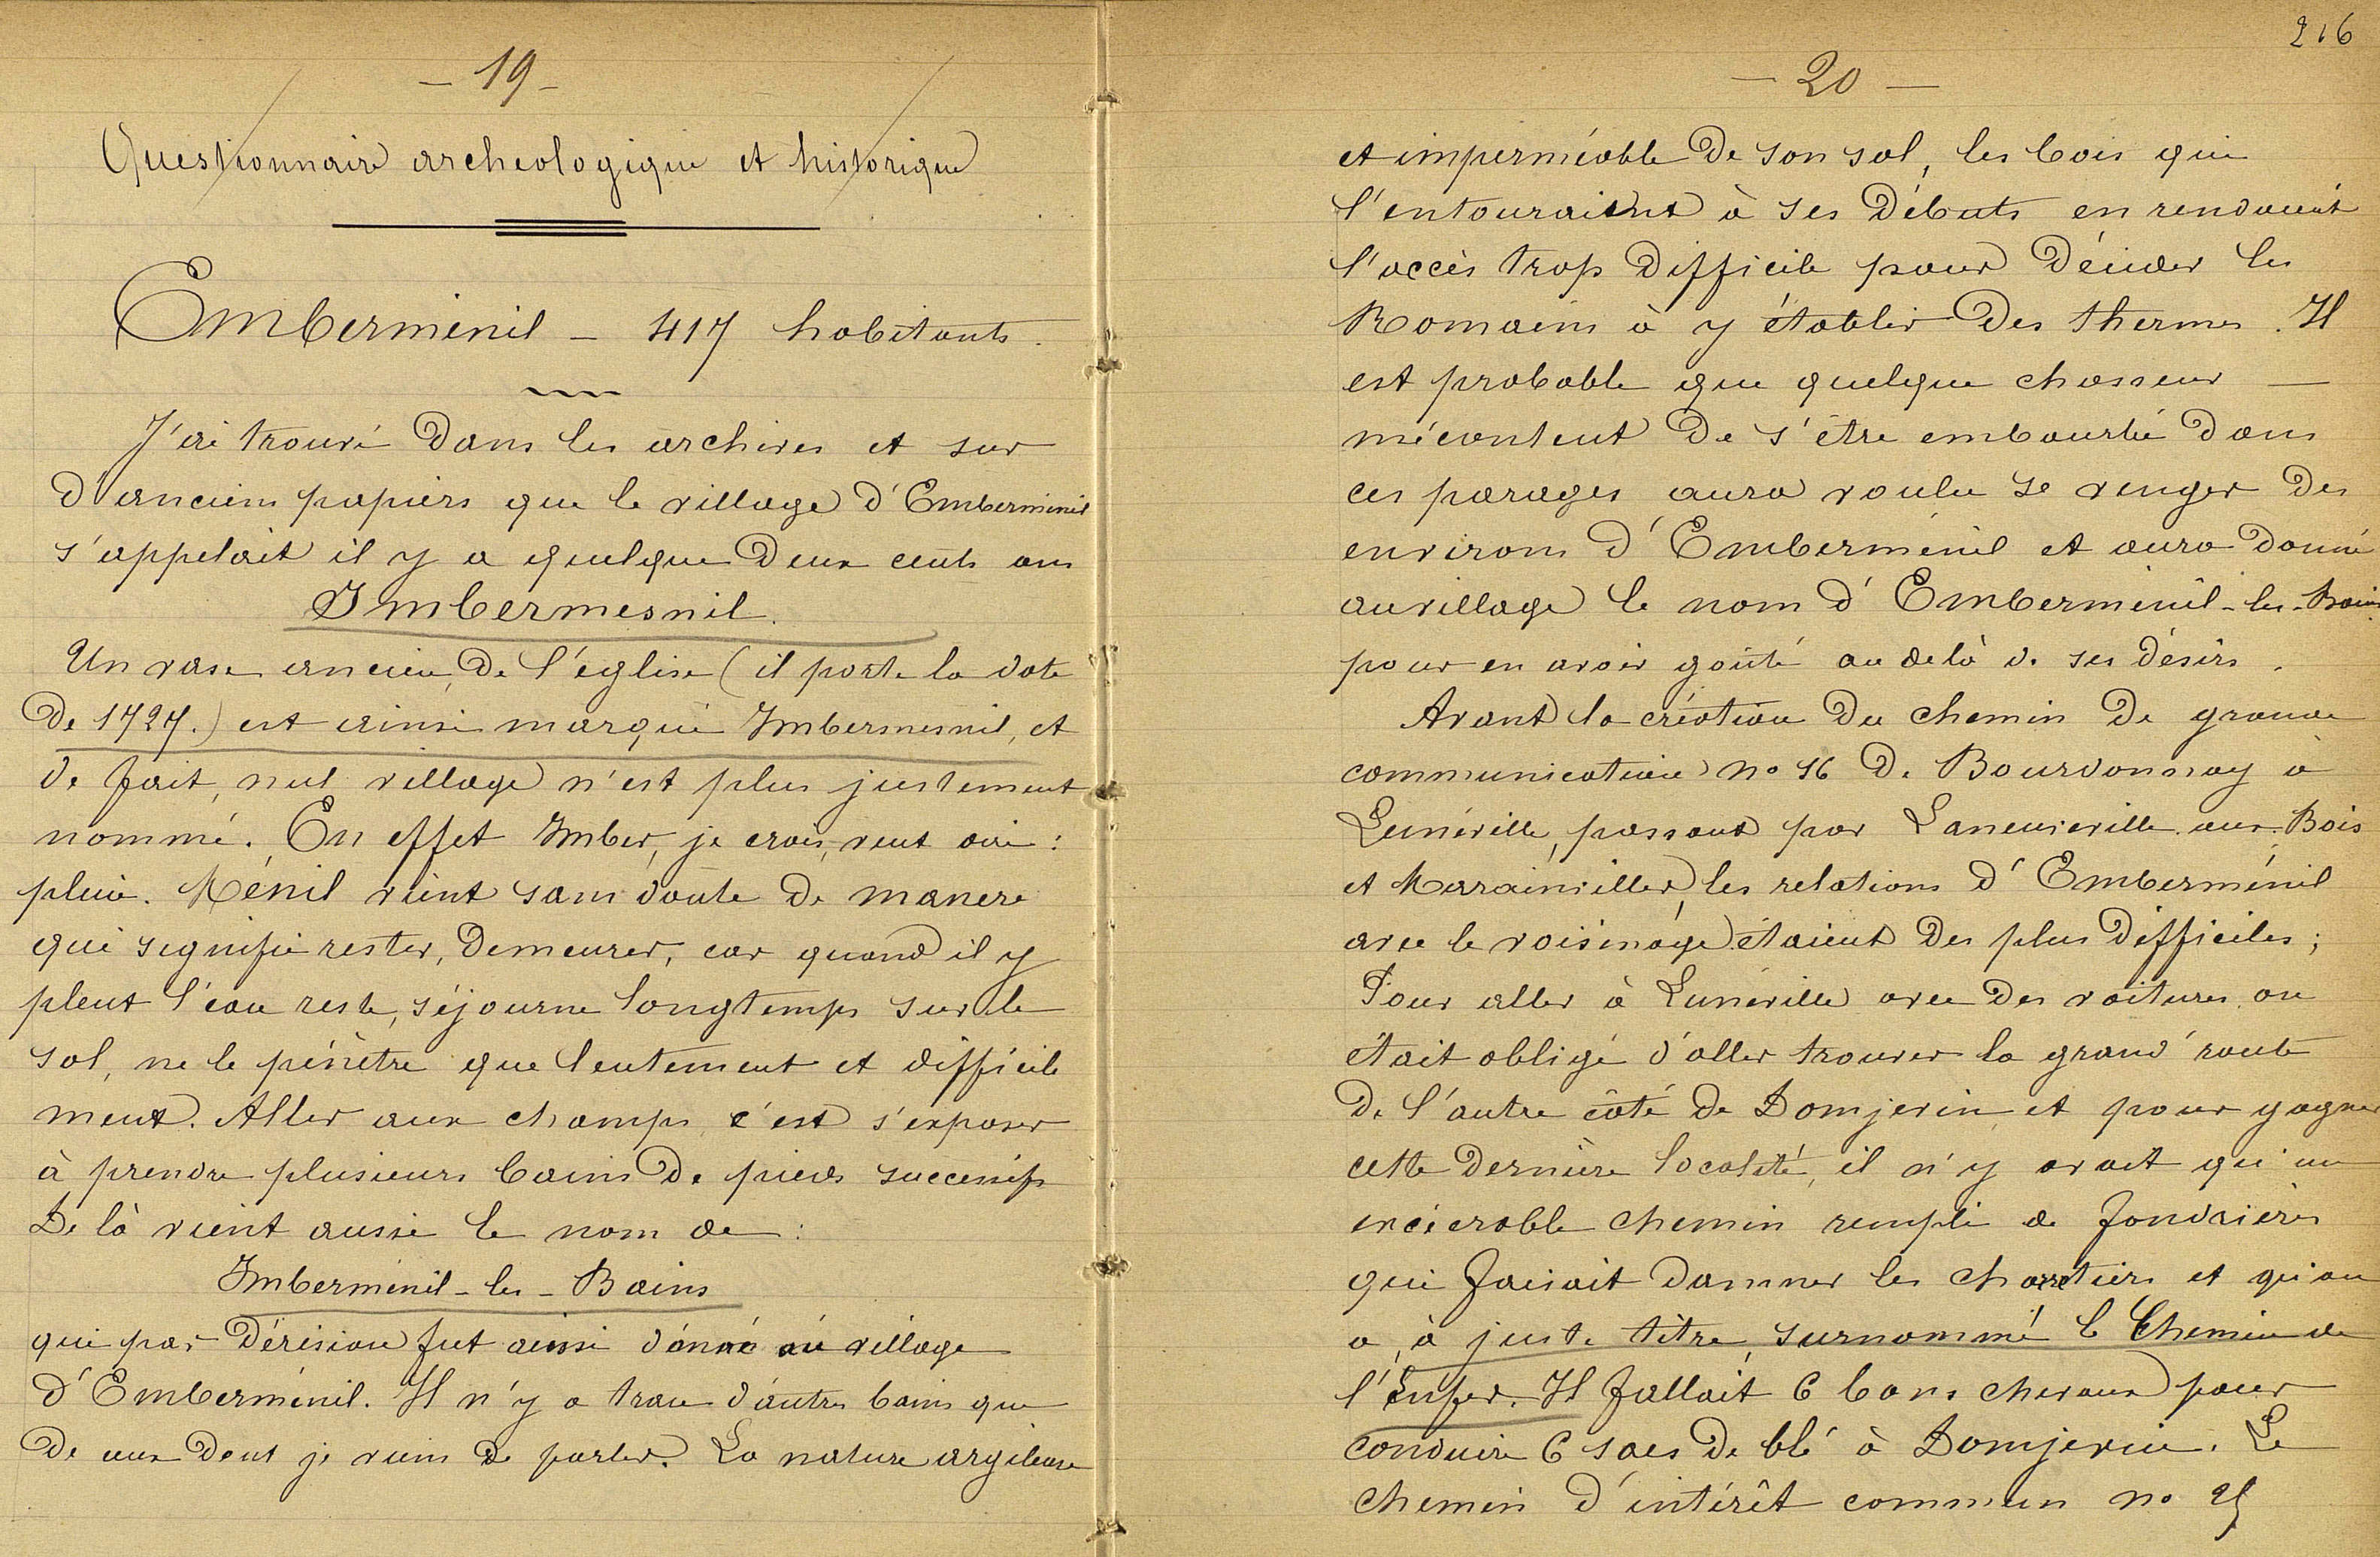 - 19 -
Questionnaire archeologique et historique
Emberménil - 417 habitants.
J'ai trouvé dans les archives et sur
d'anciens papiers que le village d'Emberménil
s'appelait il y a quelque deux cents ans
Imbermesnil.
Un vase ancien, de l'église (il porte la date
de 1727.) est ainsi marqué Imbermesnil, et
de fait, nul village n'est plus justement
nommé. En effet Imber, je crois, veut dire :
pluie. Ménil vient sans doute de manere
qui signifie rester, demeurer, car quand il y
pleut l'eau reste, séjourne longtemps sur le
sol, ne le pénètre que lentement et difficile
ment. Aller aux champs c'est s'exposer
à prendre plusieurs bains de pieds successifs
De là vient aussi le nom de :
Imberménil-les-Bains
qui par dérision fut ainsi donné au village
d'Emberménil. Il n'y a trace d'autres bains que
de ceux dont je viens de parler. La nature argileuse
216
- 20 -
et imperméable de son sol, les bois qui
l'entouraient à ses débuts en rendaient
l'accès trop difficile pour décider les
Romains à y établir des thermes. Il
est probable que quelque chasseur -
mécontent de s'être embourbé dans
ces parages aura voulu se venger des
environs d'Emberménil et aura donné
au village le nom d'Emberménil-les-Bains
pour en avoir goûté au delà de ses désirs.
Avant la création du chemin de grande
communication no 16 de Bourdonnay à
Lunéville, passant par Laneuveville-aux-Bois
et Marainviller, les relations d'Emberménil
avec le voisinage étaient des plus difficiles ;
Pour aller à Lunéville avec des voitures, on
était obligé d'aller trouver la grand'route
de l'autre côté de Domjevin et pour gagner
cette dernière localité, il n'y avait qu'un
exécrable chemin rempli de fondrières
qui faisait damner les charretiers et qu'on
a, à juste titre, surnommé le Chemin de
l'Enfer. Il fallait 6 bons chevaux pour
conduire 6 sacs de blé à Domjevin. Le
chemin d'intérêt commun no